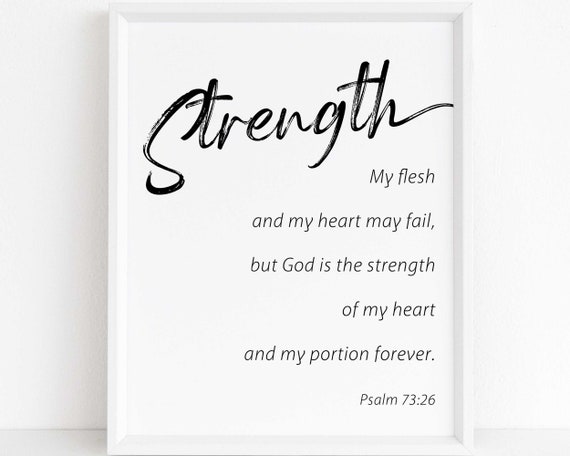 Strength
My flesh
and my heart may fail,
but God is the strength
of my heart
and my portion forever.
Psalm 73:26